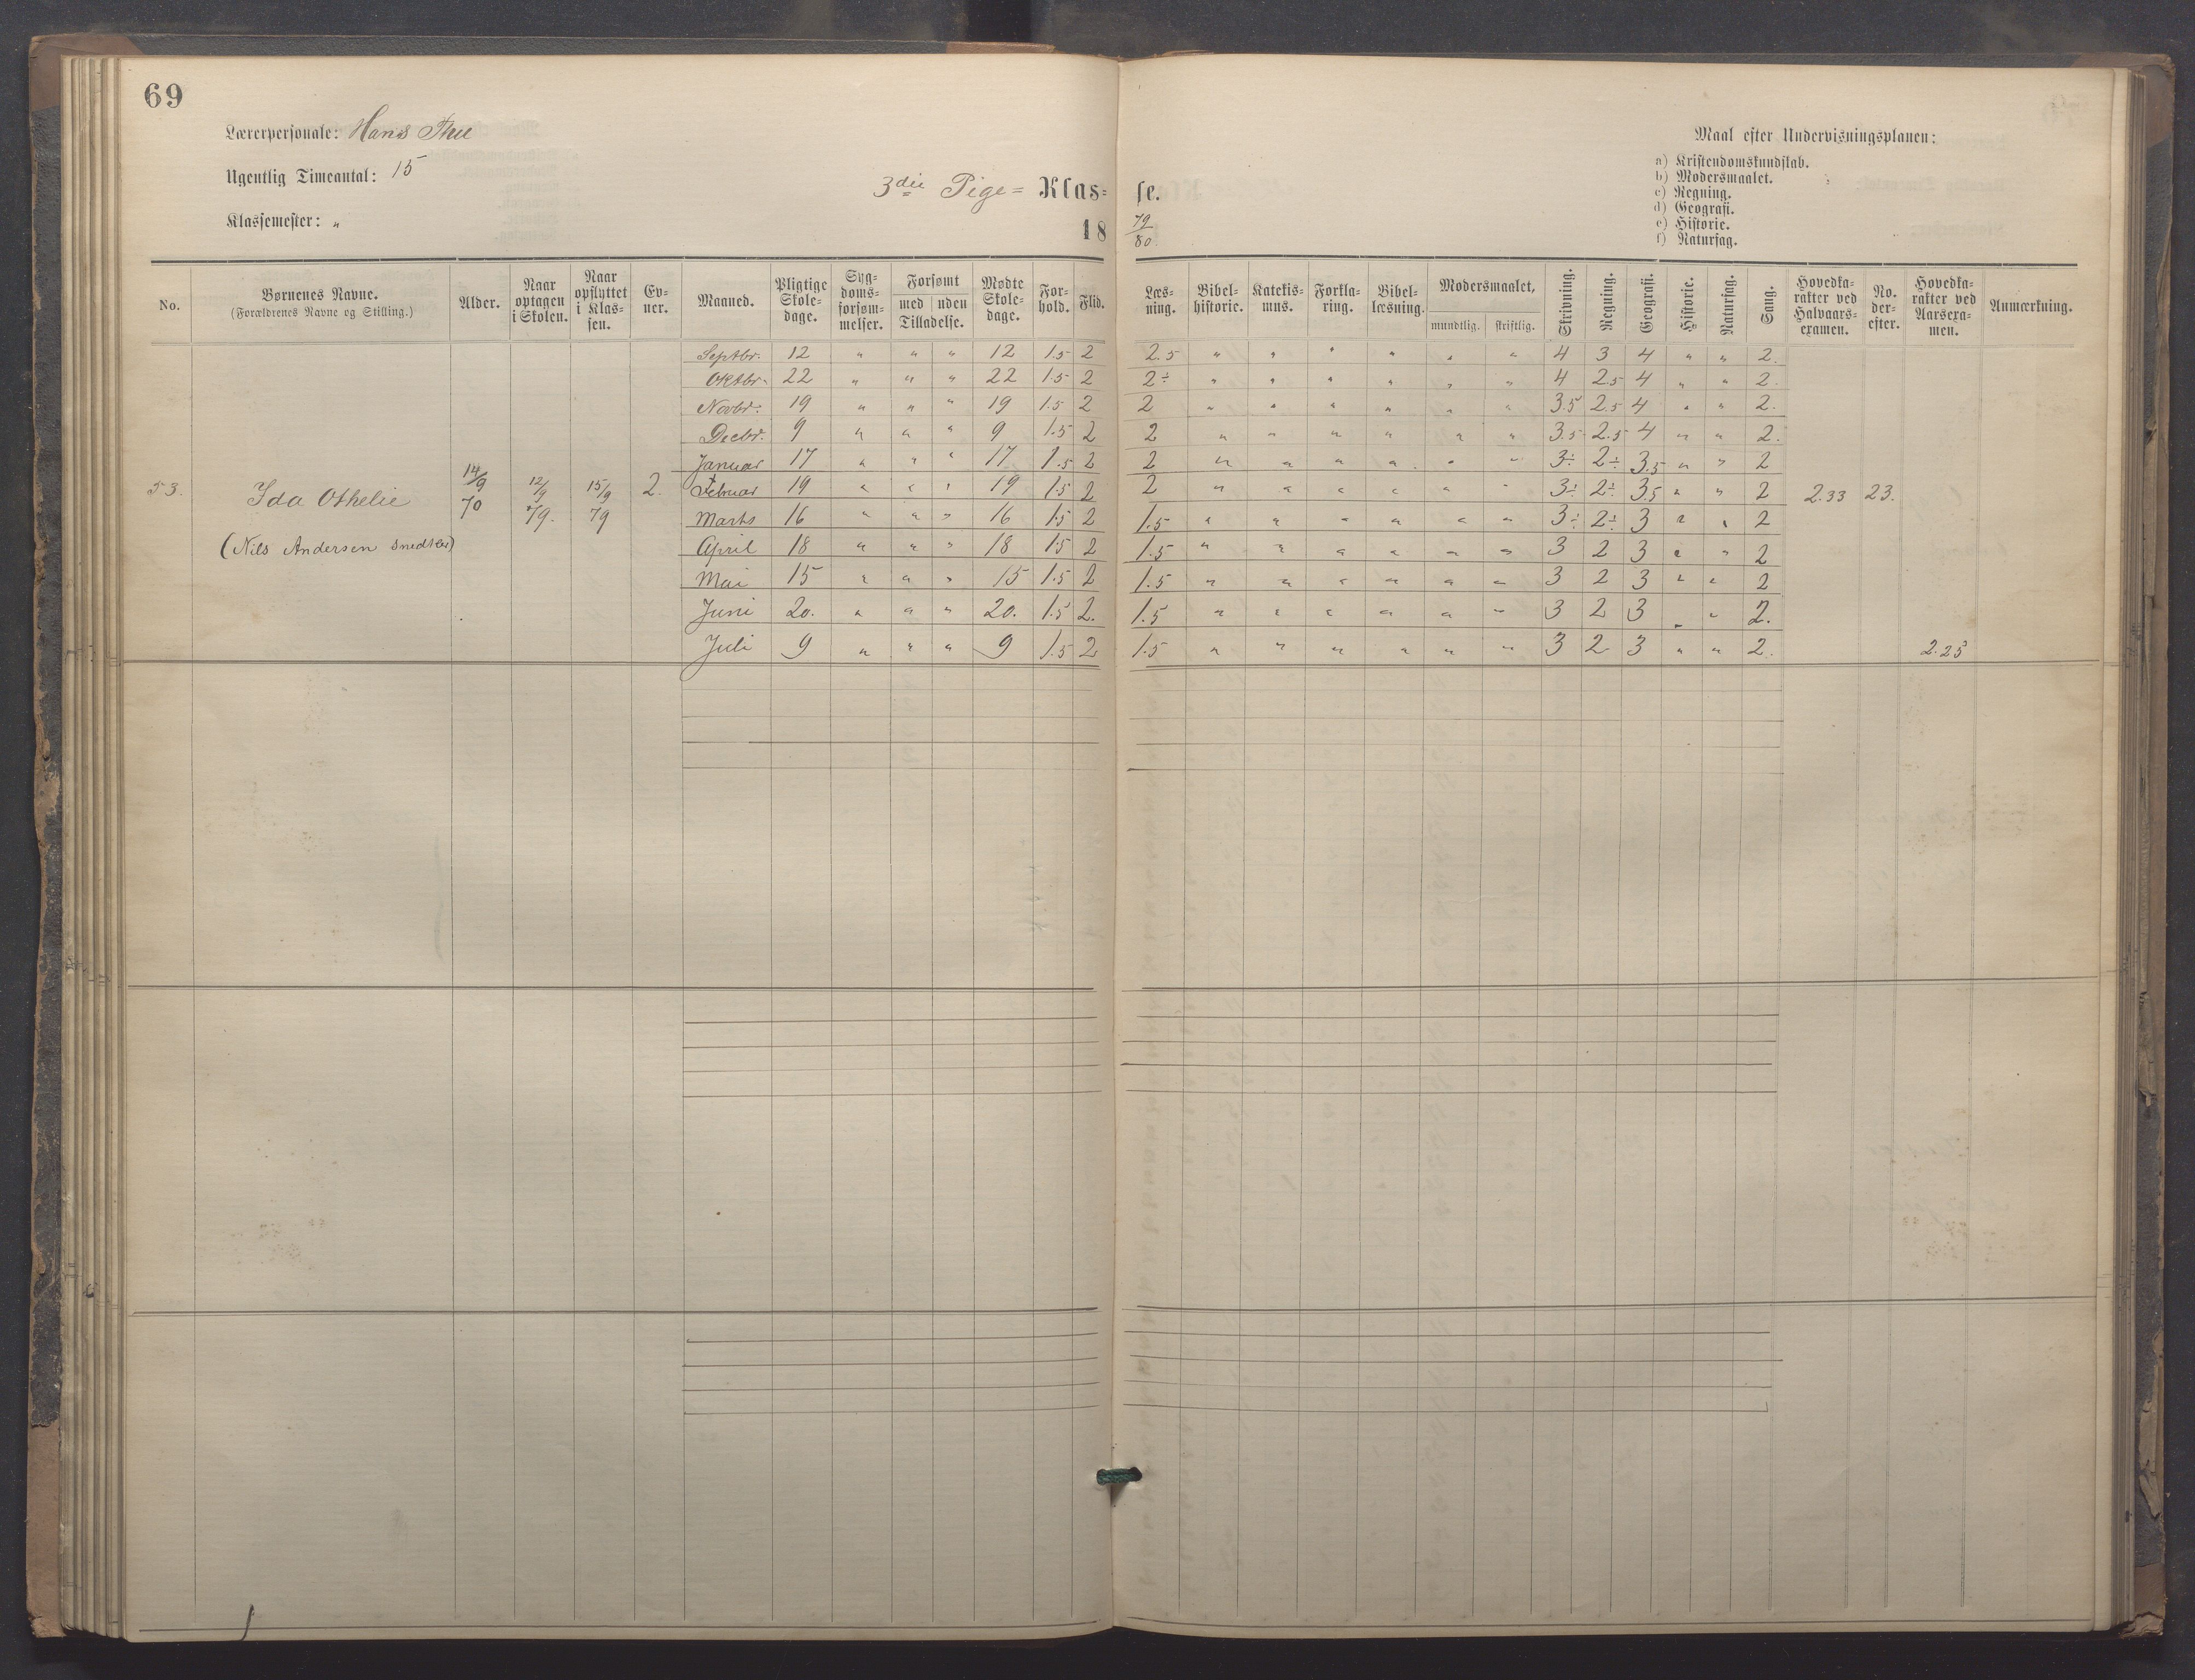 69
Lærerpersonale: Hans Thu
Ugentlig Timeantal: 15
Klassemester: "
3die Pige= Klas=
se.
18 79/80
Maal efter Undervisningsplanen:
a) Kristendomskundskab.
b) Modersmaalet.
c) Regning.
d) Geografi.
e) Historie.
f) Naturfag.
No. Børnenes Navne. (Forældrenes Navne og Stilling.) Alder. Naar optagen i Skolen. Naar opflyttet i Klassen. Evner. Maaned. Pligtige Skoledage. Sygdomsforsømmelser. Forsømt med uden Tilladelse. Mødte Skoledage. Forhold. Flid. Læsning. Bibelhistorie. Katekismus. Forklaring. Bibellæsning. Modersmaalet, mundtlig. skriftlig. Skrivning. Regning. Geografi. Historie. Naturfag. Sang. Hovedkarakter ved Halvaarsexamen. No. derefter. Hovedkarakter ved Aarsexamen. Anmærkning.
Septbr. 12 " " " 12 1.5 2 2.5 " " " " " " 4 3 4 " " 2.
Oktbr. 22 " " " 22 1.5 2 2÷ " " " " " " 4 2.5 4 " " 2.
Novbr. 19 " " " 19 1.5 2 2 " " " " " " 3.5 2.5 4 " " 2.
Decbr. 9 " " " 9 1.5 2 2 " " " " " " 3.5 2.5 4 " " 2.
Januar 17 " " " 17 1.5 2 2 " " " " " " 3÷ 2÷ 3.5 " " 2
53. Ida Othelie 14/9 70 12/9 79. 15/9 79 2. Februar 19 " " " 19 1.5 2 2 " " " " " " 3÷ 2÷ 3.5 " " 2 2.33 23.
Marts 16 " " " 16 1.5 2 1.5 " " " " " " 3÷ 2÷ 3 " " 2
(Nils Andersen Snedker) April 18 " " " 18 1.5 2 1.5 " " " " " " 3 2 3 " " 2
Mai 15 " " " 15 1.5 2 1.5 " " " " " " 3 2 3 " " 2
Juni 20. " " " 20. 1.5 2. 1.5 " " " " " " 3 2 3 " " 2.
Juli 9 " " " 9 1.5 2 1.5 " " " " " " 3 2 3 " " 2. 2.25